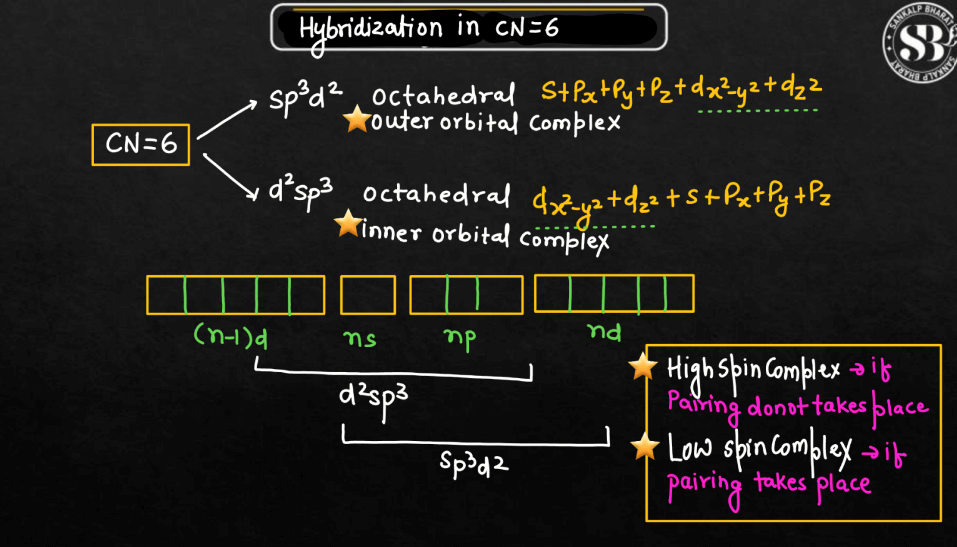 Hybridization in CN=6
SANKALP BHARAT
SB
SANKALP BHARAT
CN=6
sp³d² octahedral s+Px+Py+Pz+dx²-y²+dz²
outer orbital complex
d²sp³ octahedral dx²-y²+dz²+s+Px+Py+Pz
inner orbital complex
(n-1)d ns np nd
d²sp³
sp³d²
High spin complex → if
Pairing donot takes place
Low spin complex → if
pairing takes place